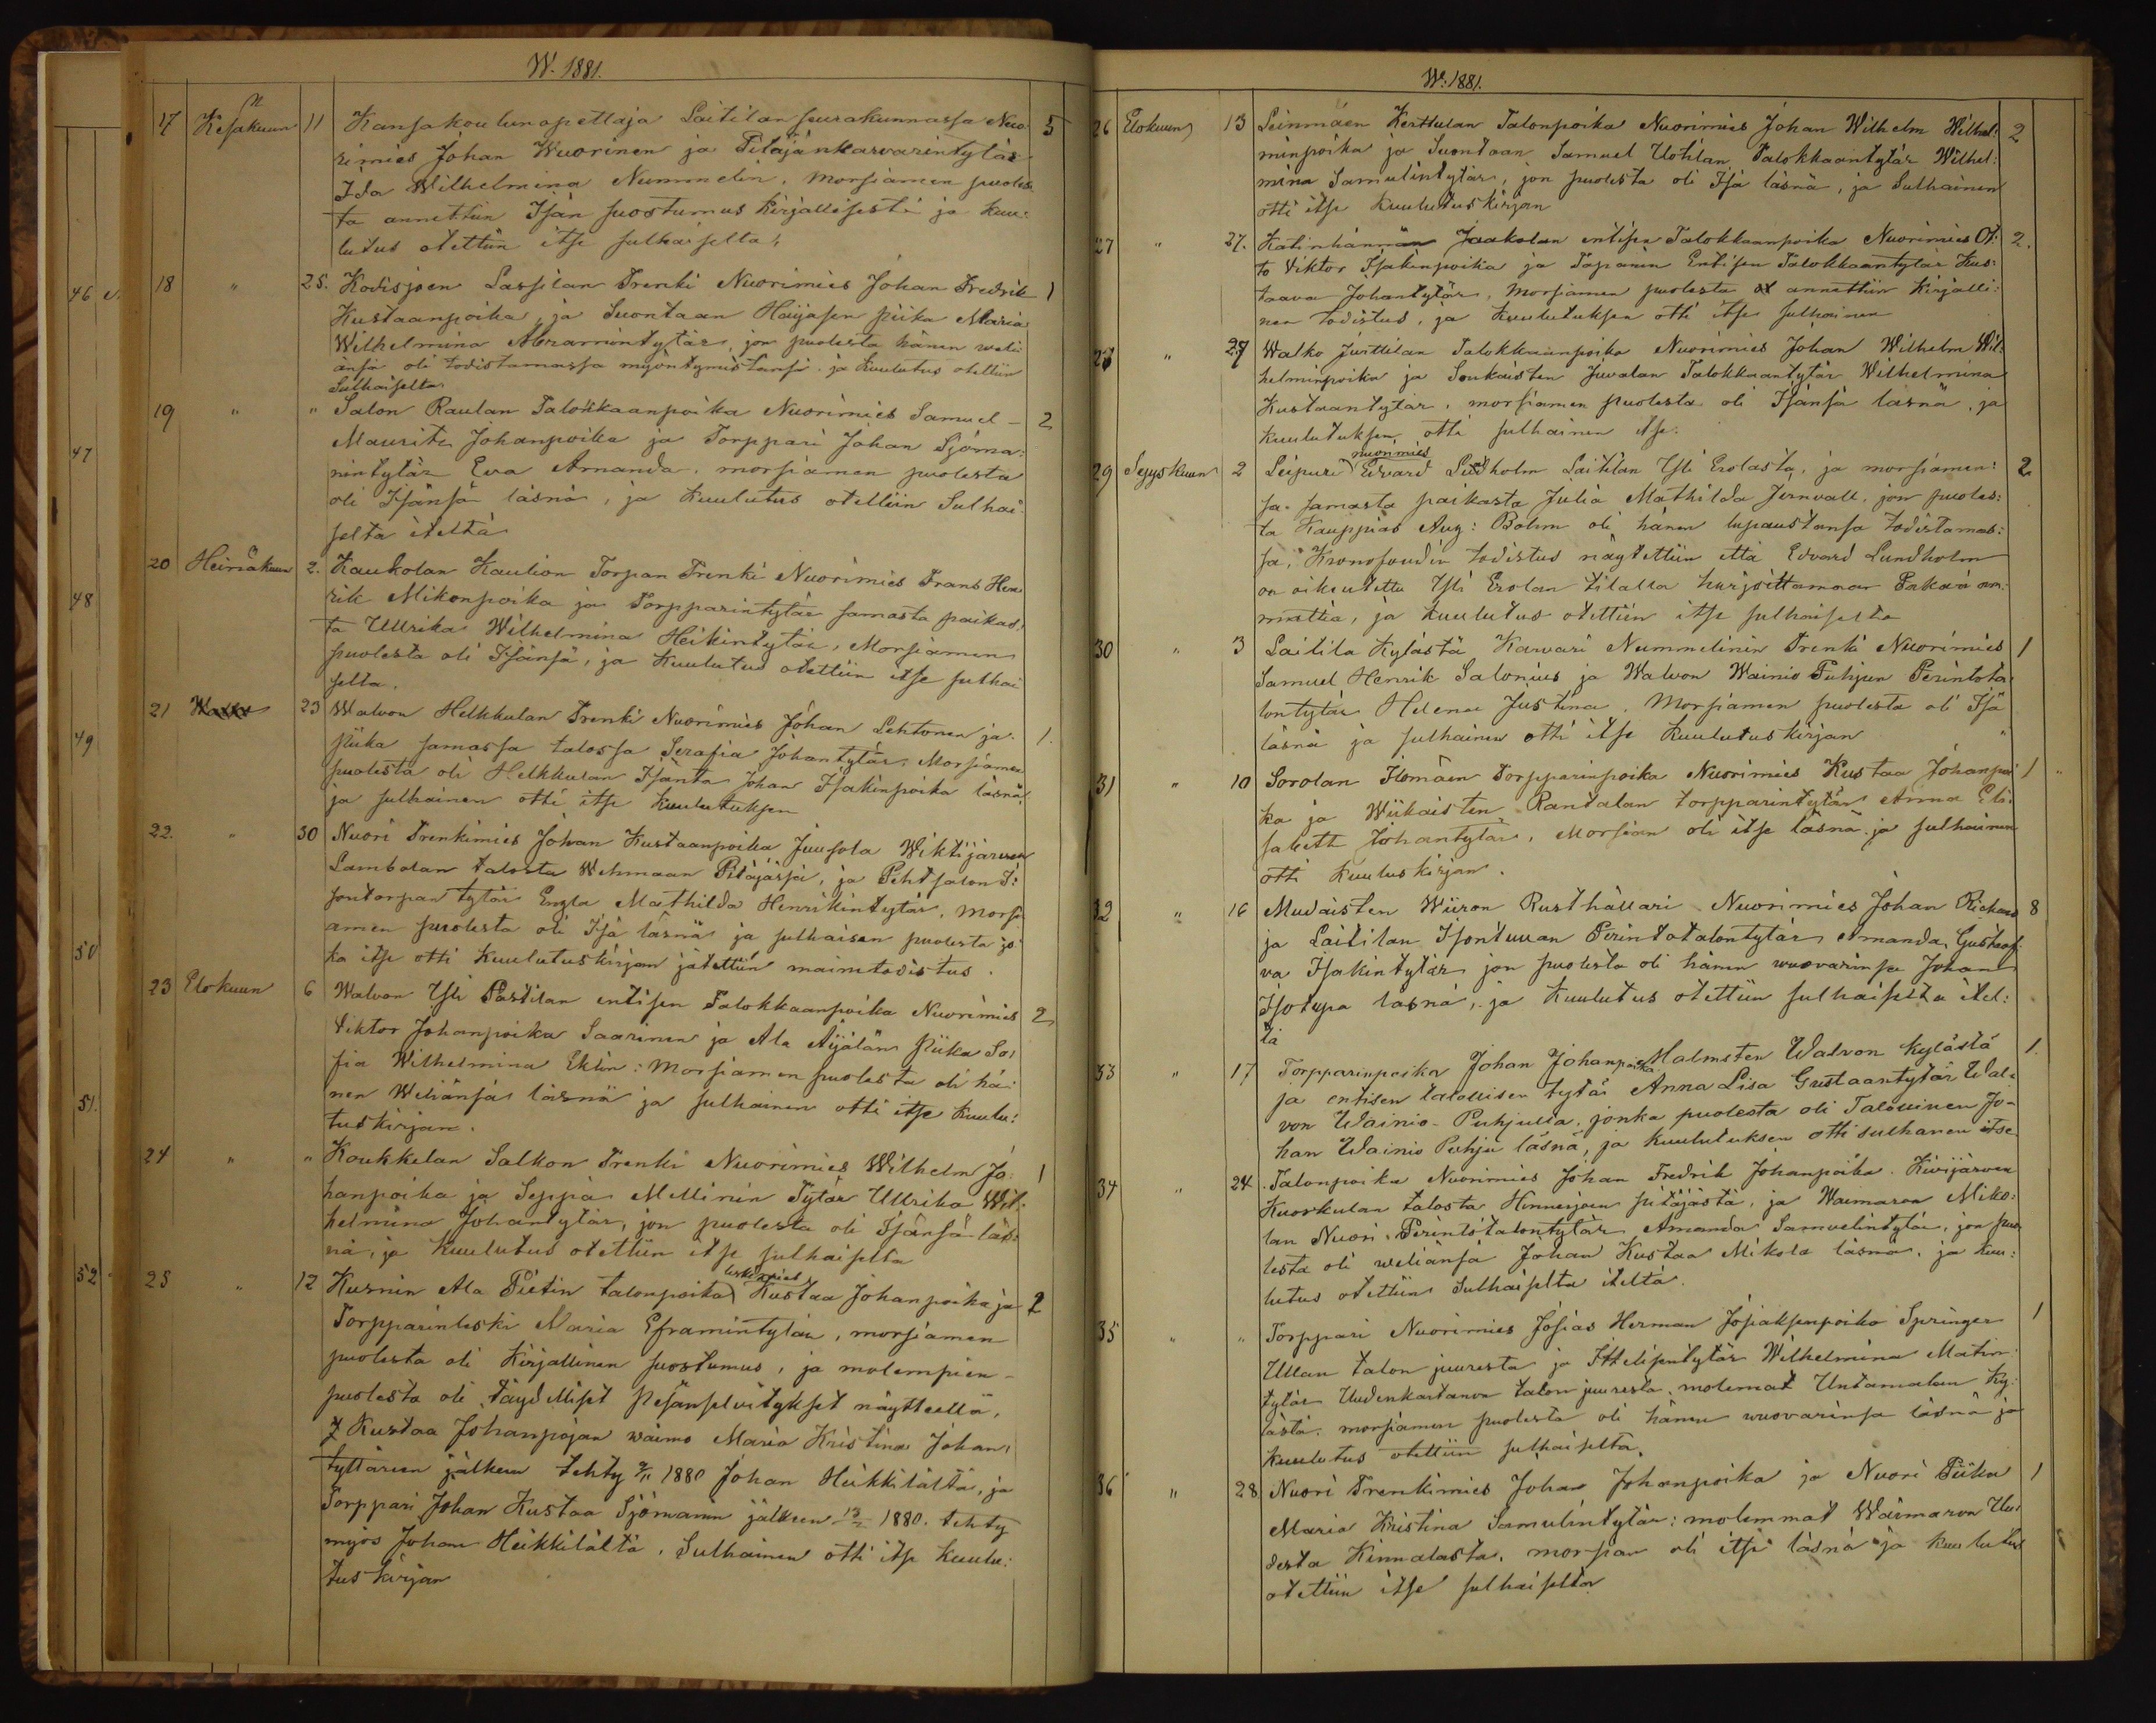 W. 1881.
17 Kesäkuun 11 Kansakoulunopettaja Laitilan seurakunnassa Nuo: 5
rimies Johan Wuorinen ja Pitäjänkarvarintytär
Ida Wilhelmina Nummelin. Morsiamen puoles:
ta annettiin Isän suostumus kirjallisesti ja kuu:
lutus otettiin itse sulhaiselta.
18 " 25. Kodisjoen Lassilan Trenki Nuorimies Johan Fredrik 1
Kustaanpoika, ja Suontaan Häijäsen piika Maria
Wilhelmina Abramintytär, jon puolesta hänen weli
änsä oli todistamassa myöntymistänsä. ja Kuulutus otettiin
Sulhaiselta.
19 " " Salon Raulan Talokkaanpoika Nuorimies Samuel - 2
Maurits Johanpoika ja Torppari Johan Sjöma:
nintytär Eva Amanda. morsiamen puolesta
oli Isänsä läsnä, ja Kuulutus otettiin Sulhai
selta iteltä
20 Heinäkuun 2. Kaukolan Kaulion Torpan Trenki Nuorimies Frans Hen:
rik Mikonpoika ja Torpparintytär samasta paikas:
ta Ullrika Wilhelmina Heikintytär, Morsiamen
puolesta oli Isänsä, ja Kuulutus otettiin itse sulhai
selta.
21 23 Walvon Helkkulan Trenki Nuorimies Johan Lehtonen ja 1.
Piika samassa talossa Serafia Johantytär. Morsiamen
puolesta oli Helkkulan Isäntä Johan Isakinpoika läsnä,
ja sulhainen otti itse kuulutuksen
22. " 30 Nuori Trenkimies Johan Kustaanpoika Juusola Wiktijärven
Lambolan talosta Wehmaan Pitäjäsä, ja Pehtsalon I:
sontorpan tytär Engla Mathilda Henrikintytär, Morsi
amen puolesta oli Isä läsnä ja sulhaisen puolesta jo
ka itse otti Kuulutuskirjan jätettiin mainetodistus.
23 Elokuun 6 Walvon Yli Pastilan entisen Talokkaanpoika Nuorimies 2
Viktor Johanpoika Saarinen ja Ala Äijälän Piika So:
fia Wilhelmina Eklin: Morsiamen puolesta oli hä:
nen Weliänsä läsnä ja sulhainen otti itse Kuulu:
tuskirjan.
24 " " Koukkelan Salkon Trenki Nuorimies Wilhelm Jo: 1
hanpoika ja Seppä Mellinin Tytär Ullrika Wil:
helmina Johantytär, jon puolesta oli Isänsä läs:
nä, ja Kuulutus otettiin itse sulhaiselta
25 " 12 Kusnin Ala Pietin talonpoika leskimies Kustaa Johanpoika ja 2
Torpparinleski Maria Eframintytär, morsiamen
puolesta oli Kirjallinen suostumus, ja molempien -
puolesta oli täydelliset Pesänselvitykset näytteellä,
Kustaa Johanpojan waimo Maria Kristina Johan:
tyttären jälkeen tehty 9/11 1880 Johan Heikkilältä, ja
Torppari Johan Kustaa Sjömanin jälkeen 1880. tehty
myös Johan Heikkilältä. Sulhainen otti itse Kuulu:
tuskirjan
46
47
48
49
50
51.
52
W. 1881.
26 Elokuun 13 Leinmäen Kerttulan Talonpoika Nuorimies Johan Wilhelm Wilhel: 2
minpoika ja Suontaan Samuel Uotilan Talokkaantytär Wilhel:
mina Samulintytär, jon puolesta oli Isä läsnä, ja Sulhainen
otti itse Kuulutuskirjan
27 " 27. Katinhännän Jaakolan entisen Talokkaanpoika Nuorimies Ot: 2.
to Viktor Isakinpoika ja Tapanin Entisen Talokkaantytär Kus:
taava Johantytär, Morsiamen puolesta annettiin Kirjalli:
nen todistus, ja Kuulutuksen otti itse sulhainen
28 " 27 Walko Juttilan Talokkaanpoika Nuorimies Johan Wilhelm Wil:
helminpoika ja Soukaisten Juvalan Talokkaantytär Wilhelmina
Kustaantytär, morsiamen puolesta oli Isänsä läsnä, ja
kuulutuksen otti sulhainen itse.
29 Syyskuun 2 Leipuri nuorimies Edvard Lundholm Laitilan Yli Erolasta, ja morsiamen: 2
sa. samasta paikasta Julia Mathilda Jernvall, jon puoles:
ta Kauppias Aug: Bohm oli hänen lupaustansa todistamas:
sa, Kronofoudin todistus näytettiin että Edvard Lundholm
on oikeutettu Yli Erolan tilalla harjoittamaan Pakari am:
mattia, ja kuulutus otettiin itse sulhaiselta
30 " 3 Laitila Kylästä Karvari Nummelinin Trenki Nuorimies 1
Samuel Henrik Salonius ja Walvon Wainio Puhjun Perintota:
lontytär Helena Justina. Morsiamen puolesta oli Isä
läsnä ja sulhainen otti itse Kuulutuskirjan
31 " 10 Sorolan Ilomäen Torpparinpoika Nuorimies Kustaa Johanpoi 1
ka ja Wiikaisten Rantalan torpparintytär Anna Eli:
sabett Johantytär. Morsian oli itse läsnä ja sulhainen
otti Kuuluskirjan.
32 " 16 Mudaisten Wiiron Rusthållari Nuorimies Johan Richard 8
ja Laitilan Isontuvan Perintotalontytär Amanda Gustaf:
va Isakintytär jon puolesta oli hänen wuovarinsa Johan
Isotupa läsnä, ja Kuulutus otettiin sulhaiselta itel:
tä
33 " 17 Torpparinpoika Johan Johanpoika Malmsten Walvon kylästä 1.
ja entisen talollisen tytär Anna Lisa Gustaantytär Wal:
von Wainio-Puhjulla, jonka puolesta oli Talollinen Jo-
han Wainio Puhju läsnä, ja kuulutuksen otti sulhanen itse
34 " 24 Talonpoika Nuorimies Johan Fredrik Johanpoika. Kivijärven
Kuoskulan talosta Hinnerjoen pitäjästä, ja Waimaron Miko:
lan Nuori Perintötalontytär Amanda Samuelintytär, jon puo
lesta oli weliänsä Johan Kustaa Mikola läsnä, ja Kuu:
lutus otettiin Sulhaiselta iteltä.
35 " " Torppari Nuorimies Josias Herman Josiaksenpoika Springer 1
Ullan talon juuresta ja Ittelisentytär Wilhelmina Matin:
tytär Uudenkartanon talon juuresta, molemat Untamalan Ky:
lästä. morsiamen puolesta oli hänen wuovarinsa läsnä ja
kuulutus otettiin sulhaiselta.
36 " 28 Nuori Trenkimies Johan Johanpoika ja Nuori Piika 1
Maria Kristina Samulintytär: molemmat Waimaron Uu:
desta Kinnalasta. morsian oli itse läsnä ja Kuulutus
otettiin itse sulhaiselta